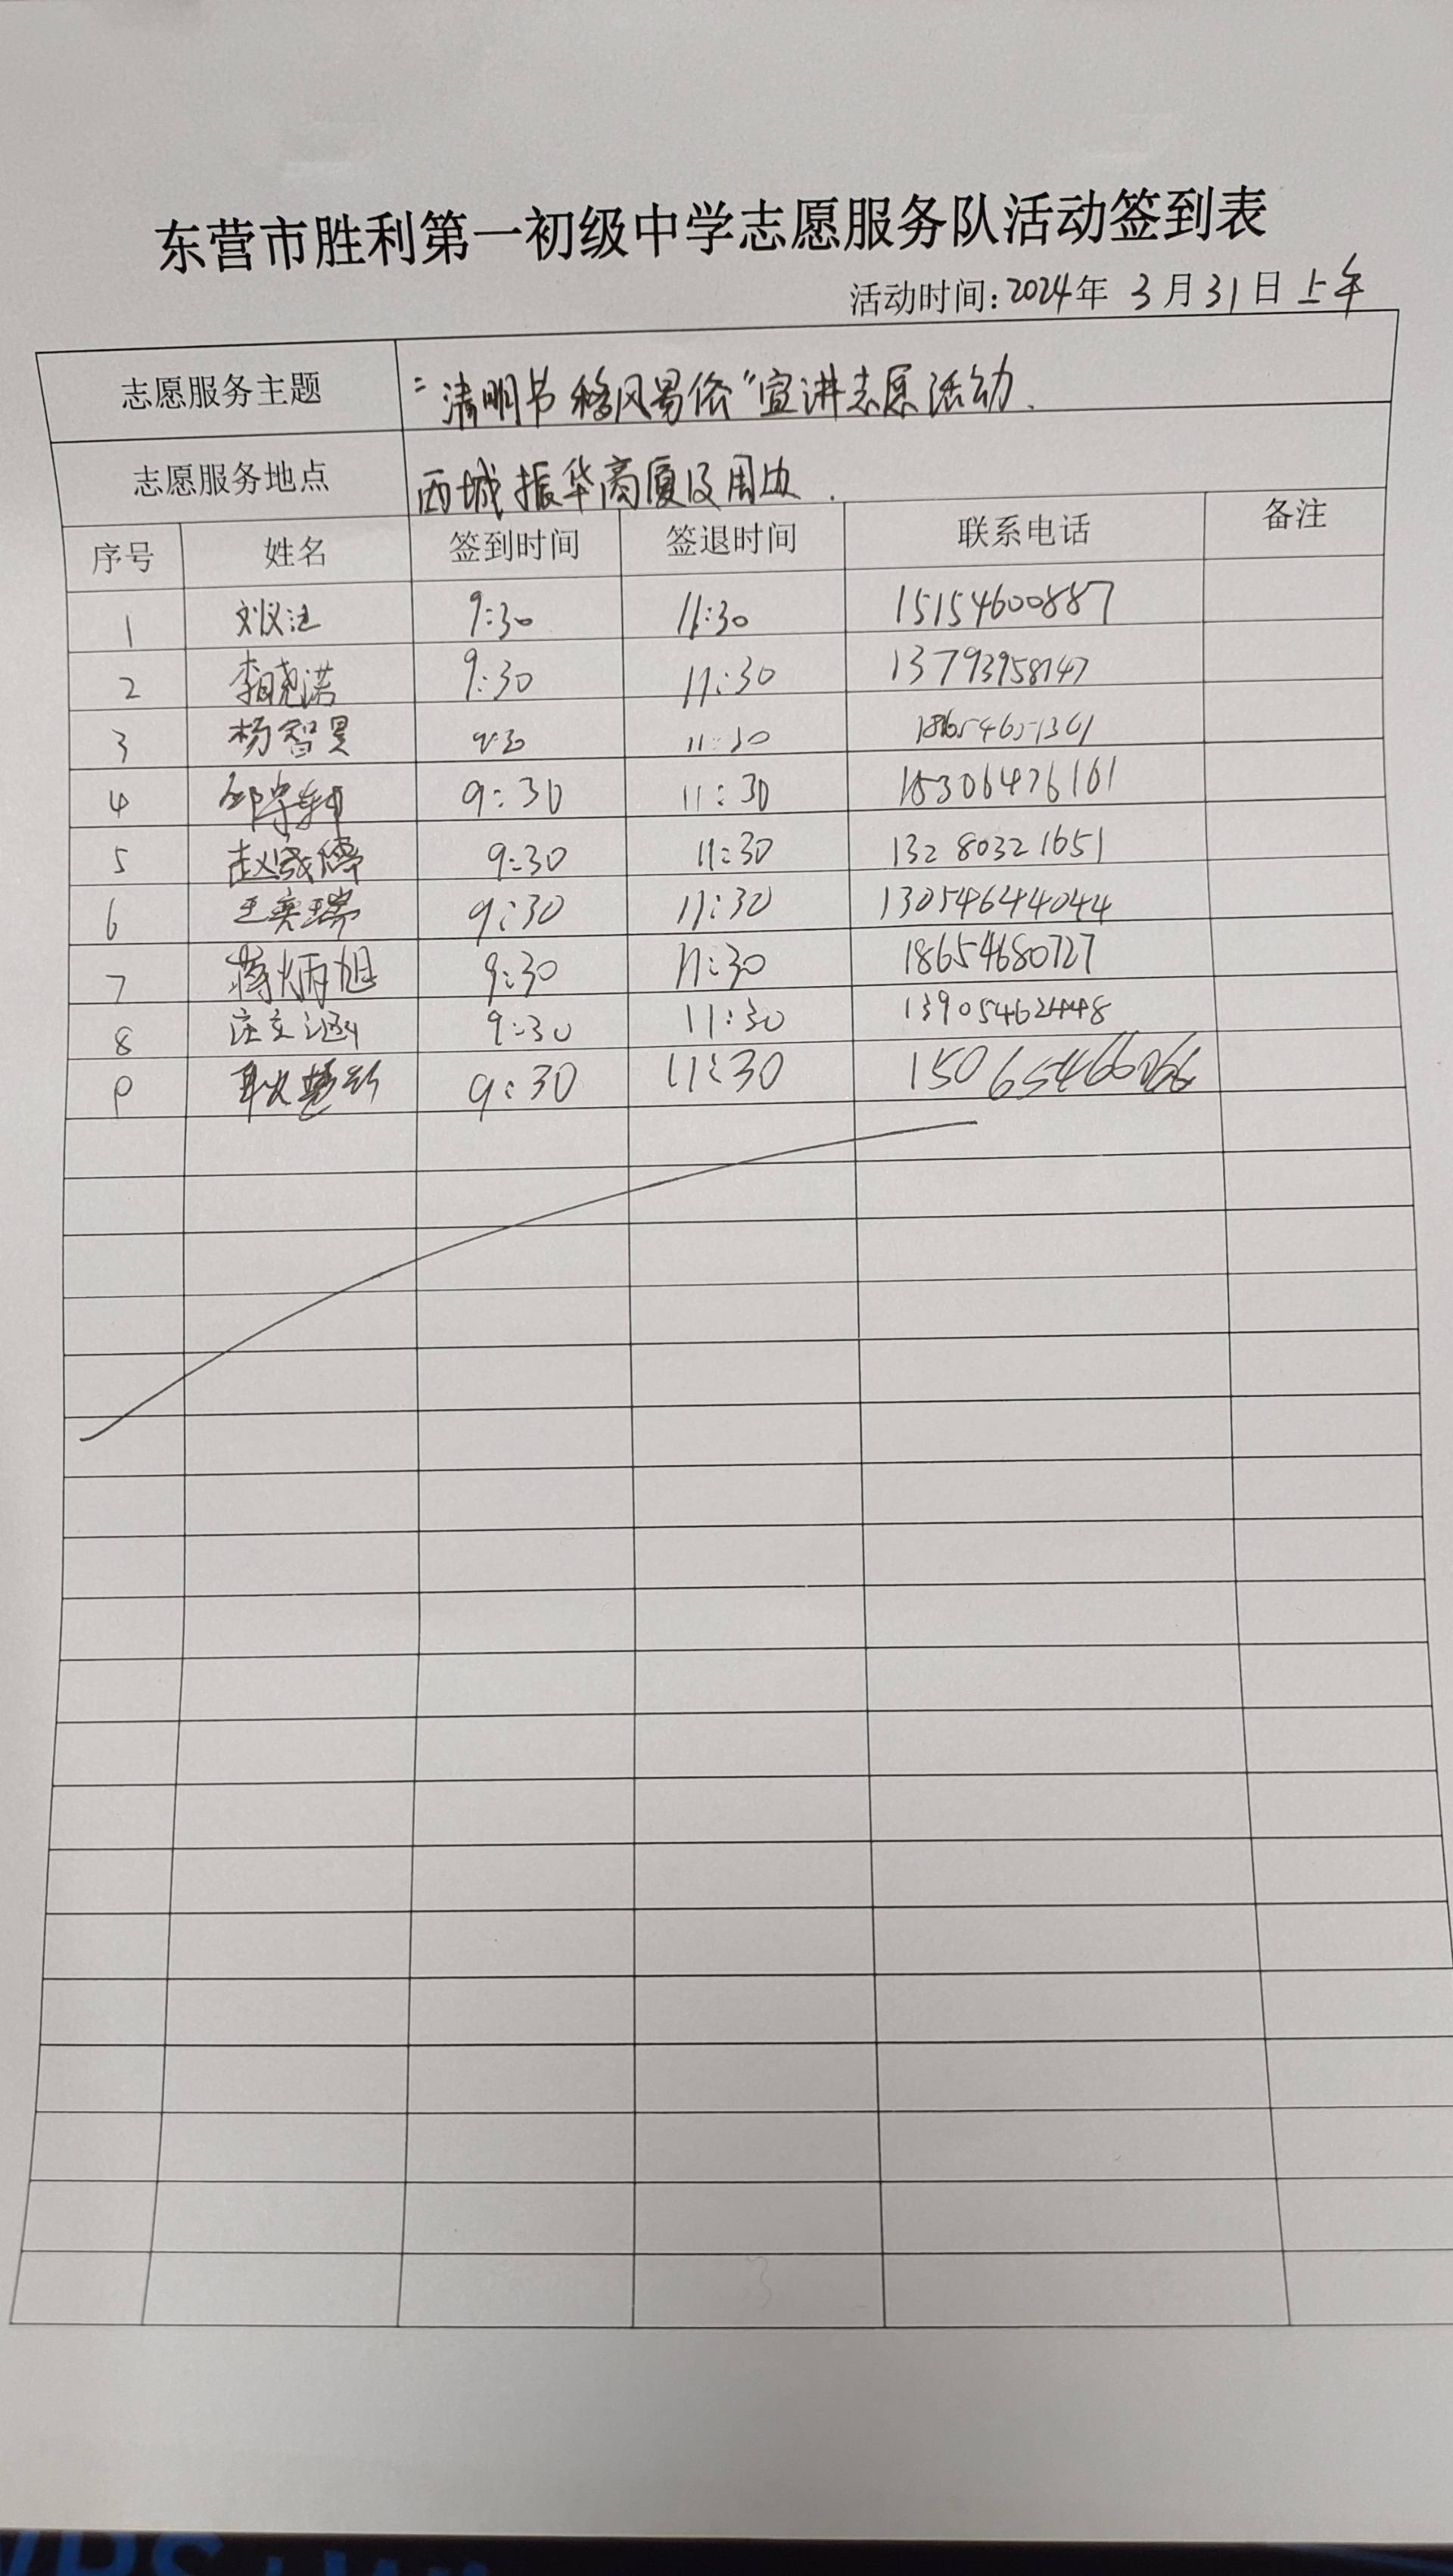 东营市胜利第一初级中学志愿服务队活动签到表
活动时间:2024年 3月31日上午
志愿服务主题 “清明节移风易俗”宣讲志愿活动.
志愿服务地点 西城振华商厦及周边.
序号 姓名 签到时间 签退时间 联系电话 备注
1 9:30 11:30 15154600887
2 李晓诺 9:30 11:30 13793958747
3 杨智昊 9:30 11:30
4 9:30 11:30 15306476161
5 9:30 11:30 13280321651
6 王奕瑞 9:30 11:30 13054644044
7 蒋炳旭 9:30 11:30 18654680727
8 庄文涵 9:30 11:30 13905462448
9 9:30 11:30